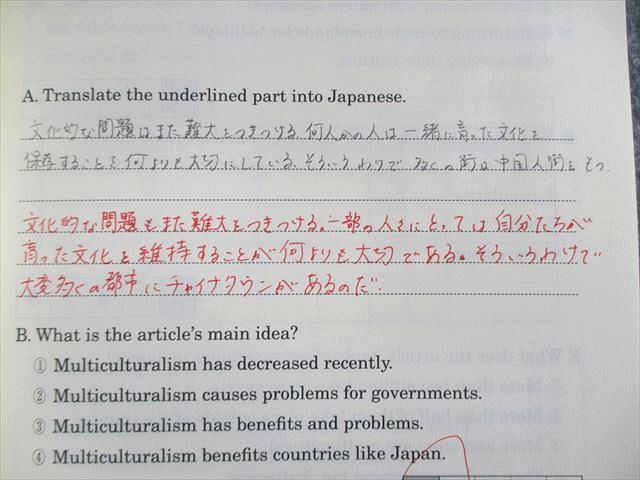 A. Translate the underlined part into Japanese.
文化的な問題はまた難大をつきつける。何人かの人は一緒に育った文化を
保存することを何よりも大切にしている。そういうわけで 多くの街は中国人街をもつ。
文化的な問題もまた難大をつきつける。一部の人々にとっては自分たちが
育った文化を維持することが何よりも大切である。そういうわけで
大変多くの都市にチャイナタウンがあるのだ。
B. What is the article's main idea?
① Multiculturalism has decreased recently.
② Multiculturalism causes problems for governments.
③ Multiculturalism has benefits and problems.
④ Multiculturalism benefits countries like Japan.